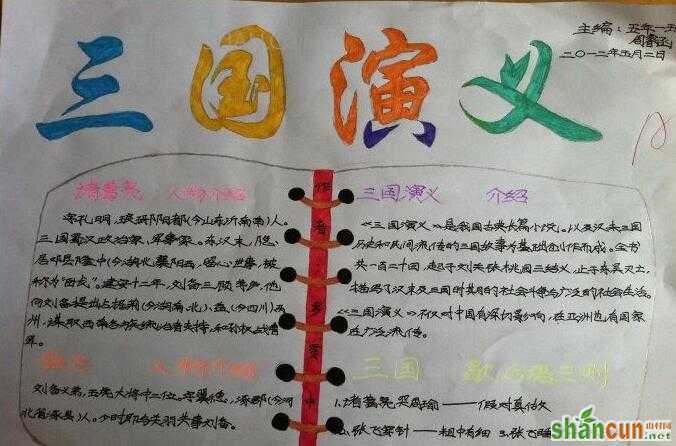 三国演义
主编：五年一五
二〇一二年五月二日
诸葛亮 人物介绍
字孔明，琅玡阳都(今山东沂南南)人。
三国蜀汉政治家，军事家。东汉末，隐
居邓县隆中(今湖北襄阳西)，留心世事，被
称为"卧龙"。建安十二年，刘备三顾茅庐，他
向刘备提出占据荆(今湖南、北)、益(今四川)两
州，
人物介绍
刘备义弟，五虎大将中二位。字翼德，涿郡(今河
北省涿县)人。少时即与关羽共事刘备。
作者：罗贯中
三国演义 介绍
《三国演义》是我国古典长篇小说。以及汉末三国
历史和民间流传的三国故事为基础创作而成。全书
共一百二十回，起于刘关张桃园三结义，止于东吴灭亡，
描写了汉末及三国时其间的社会斗争与广泛的社会生活。
《三国演义》不仅对中国有深刻影响，在亚洲也有国家
在广泛流传。
三国 歇后语三则
1.诸葛亮哭周瑜——假对真做
2.张飞穿针——粗中有细 3.张飞
shancun山村网
.net